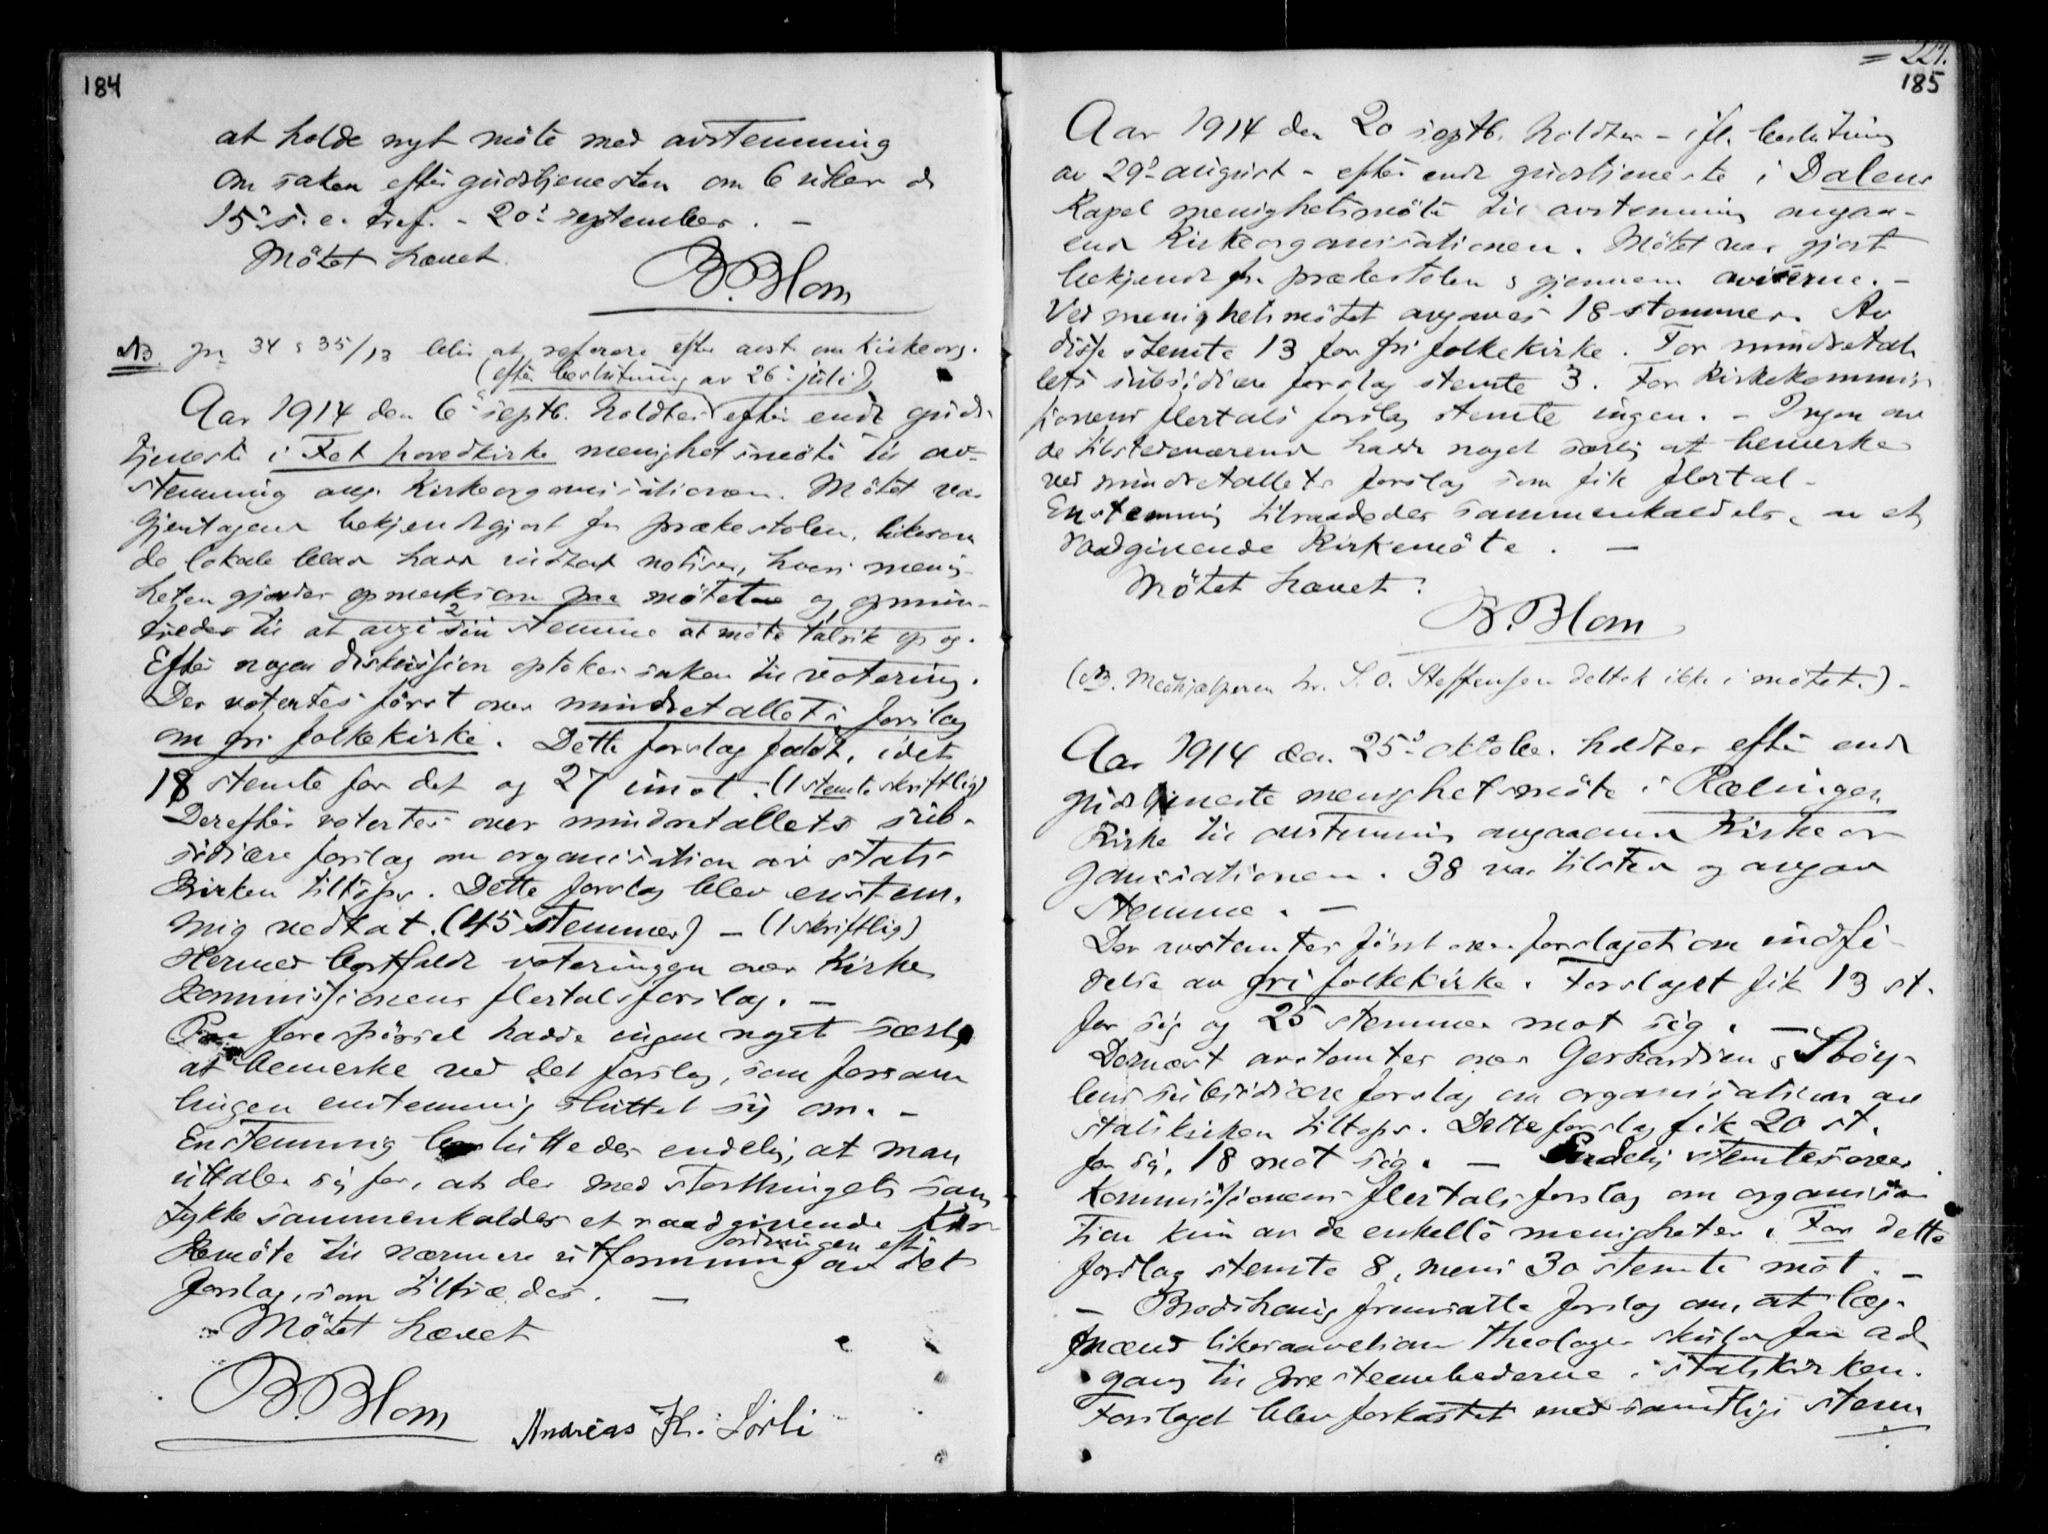 184
at holde nyt möte med avstemming
om saken efter gudstjenesten om 6 uker d
15de s. e. tref. - 20de september. -
Mötet hævet.
B. Blom
NB. jr 34 & 35/13 blir at referere efter avst. om Kirkeorg.
(efter beslutning av 26de juli)
Aar 1914 den 6te septb. holdtes efter endt guds-
tjeneste i Fet hovedkirke menighetsmöte til av-
stemning ang. Kirkeorganisationen. Mötet var
gjentagende bekjendtgjort fra prækestolen, likesom
de lokale blade hadde indtat notiser, hvori menig-
heten gjordes opmerksom paa mötet og opmun-
tredes til at avgi sin stemme at möte talrik op og.
Efter nogen diskussion optokes saken til votering.
Der votertes först over mindretallets forslag
om fri folkekirke. Dette forslag faldt, idet
18 stemte for det og 27 imot. (1 stemte skriftlig)
Derefter votertes over mindretallets sub-
sidiære forslag om organisation av stats-
kirken tiltops. Dette forslag blev enstem-
mig vedtat. (45 stemmer) - (1 skriftlig)
Hermed bortfaldt voteringen over Kirke
kommissionens flertalsforslag. -
Paa forespörsel hadde ingen noget særlig
at bemerke ved det forslag, som forsam
lingen enstemmig sluttet sig om. -
Enstemmig besluttedes endelig, at man
uttaler sig for, at der med Storthingets sam
tykke sammenkaldes et raadgivende Kir
kemöte til nærmere utformning av det
ordningen efter
forslag, som tiltrædes. -
Mötet hævet
B. Blom
Andreas K. Sörli
= 221.
185
Aar 1914 den 20 septb. holdtes - ifl. beslutning
av 29de august - efter endt gudstjeneste i Dalens
Kapel menighetsmöte til avstemning angaa-
ende Kirkeorganisationen. Mötet var gjort
bekjendt fra prækestolen & gjennem aviserne. -
Ved menighetsmötet avgaves 18 stemmer. Av
disse stemte 13 for fri folkekirke. For mindretal-
lets subsidiære forslag stemte 3. For Kirkekommis-
sionens flertals forslag stemte ingen. - Ingen av
de tilstedeværende hadde noget særlig at bemerke
ved mindretallets forslag som fik flertal -
Enstemmig tilraadedes sammenkaldelse av et
raadgivende Kirkemöte. -
Mötet hævet.
B. Blom
(NB. Medhjælperen hr. S. O. Steffensen deltok ikke i mötet.) -
Aar 1914 den 25de oktober holdtes efter endt
gudstjeneste menighetsmöte i Rælingen
Kirke til avstemning angaaende Kirkeor-
ganisationen. 38 var tilstede og avgav
stemme. -
Der avstemtes först over forslaget om indfö-
relse av fri folkekirke. Forslaget fik 13 st.
for sig og 25 stemmer mot sig. -
Dernæst avstemtes over Gerhardsen & Stöy-
lens subsidiære forslag om organisation av
statskirken tiltops. Dette forslag fik 20 st.
for sig, 18 mot sig. - Endelig stemtes over
Kommissionens flertals forslag om organisa-
tion kun av de enkelte menigheter. For dette
forslag stemte 8, mens 30 stemte mot. -
- Brodshaug fremsatte forslag om, at læg-
mænd likesaavelsom theologer skulde faa ad
gang til presteembederne i statskirken.
Forslaget blev forkastet med samtlige stem